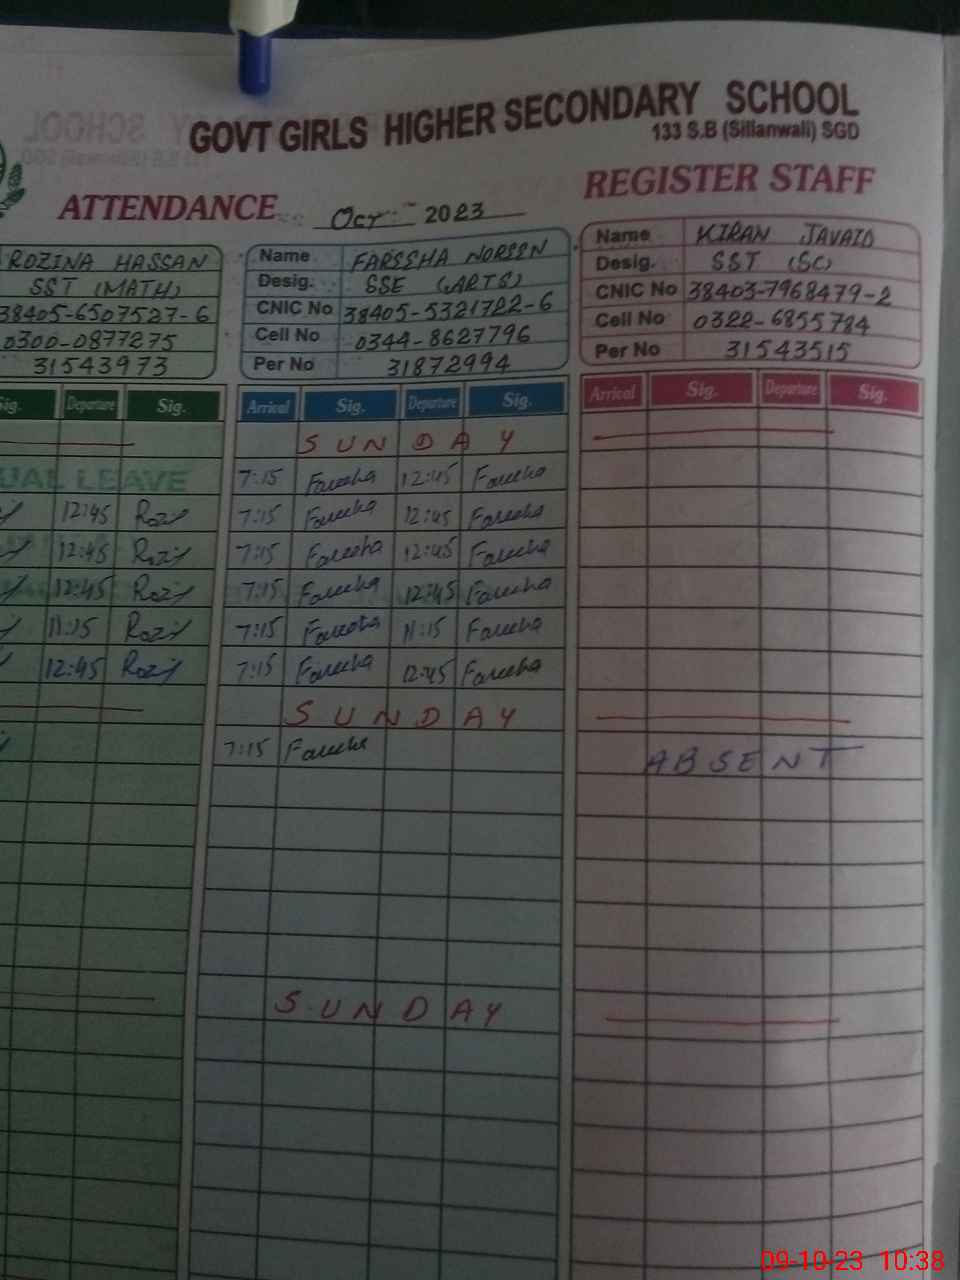 GOVT GIRLS HIGHER SECONDARY SCHOOL
133 S.B (Sillanwali) SGD
ATTENDANCE Oct: 2023 REGISTER STAFF
ROZINA HASSAN
SST (MATH)
38405-6507527-6
0300-0877275
31543973
Sig. Departure Sig.
UAL LEAVE
12:45 Rozi
12:45 Rozi
12:45 Rozi
11:15 Rozi
12:45 Rozi
Name FAREEHA NOREEN
Desig. SSE (ARTS)
CNIC No 38405-5321722-6
Cell No 0344-8627796
Per No 31872994
Arrival Sig. Departure Sig.
SUNDAY
7:15 Fareeha 12:45 Fareeha
7:15 Fareeha 12:45 Fareeha
7:15 Fareeha 12:45 Fareeha
7:15 Fareeha 12:45 Fareeha
7:15 Fareeha 11:15 Fareeha
7:15 Fareeha 12:45 Fareeha
SUNDAY
7:15 Fareeha
SUNDAY
Name KIRAN JAVAID
Desig. SST (SC)
CNIC No 38403-7968479-2
Cell No 0322-6855784
Per No 31543515
Arrival Sig. Departure Sig.
ABSENT
09-10-23 10:38